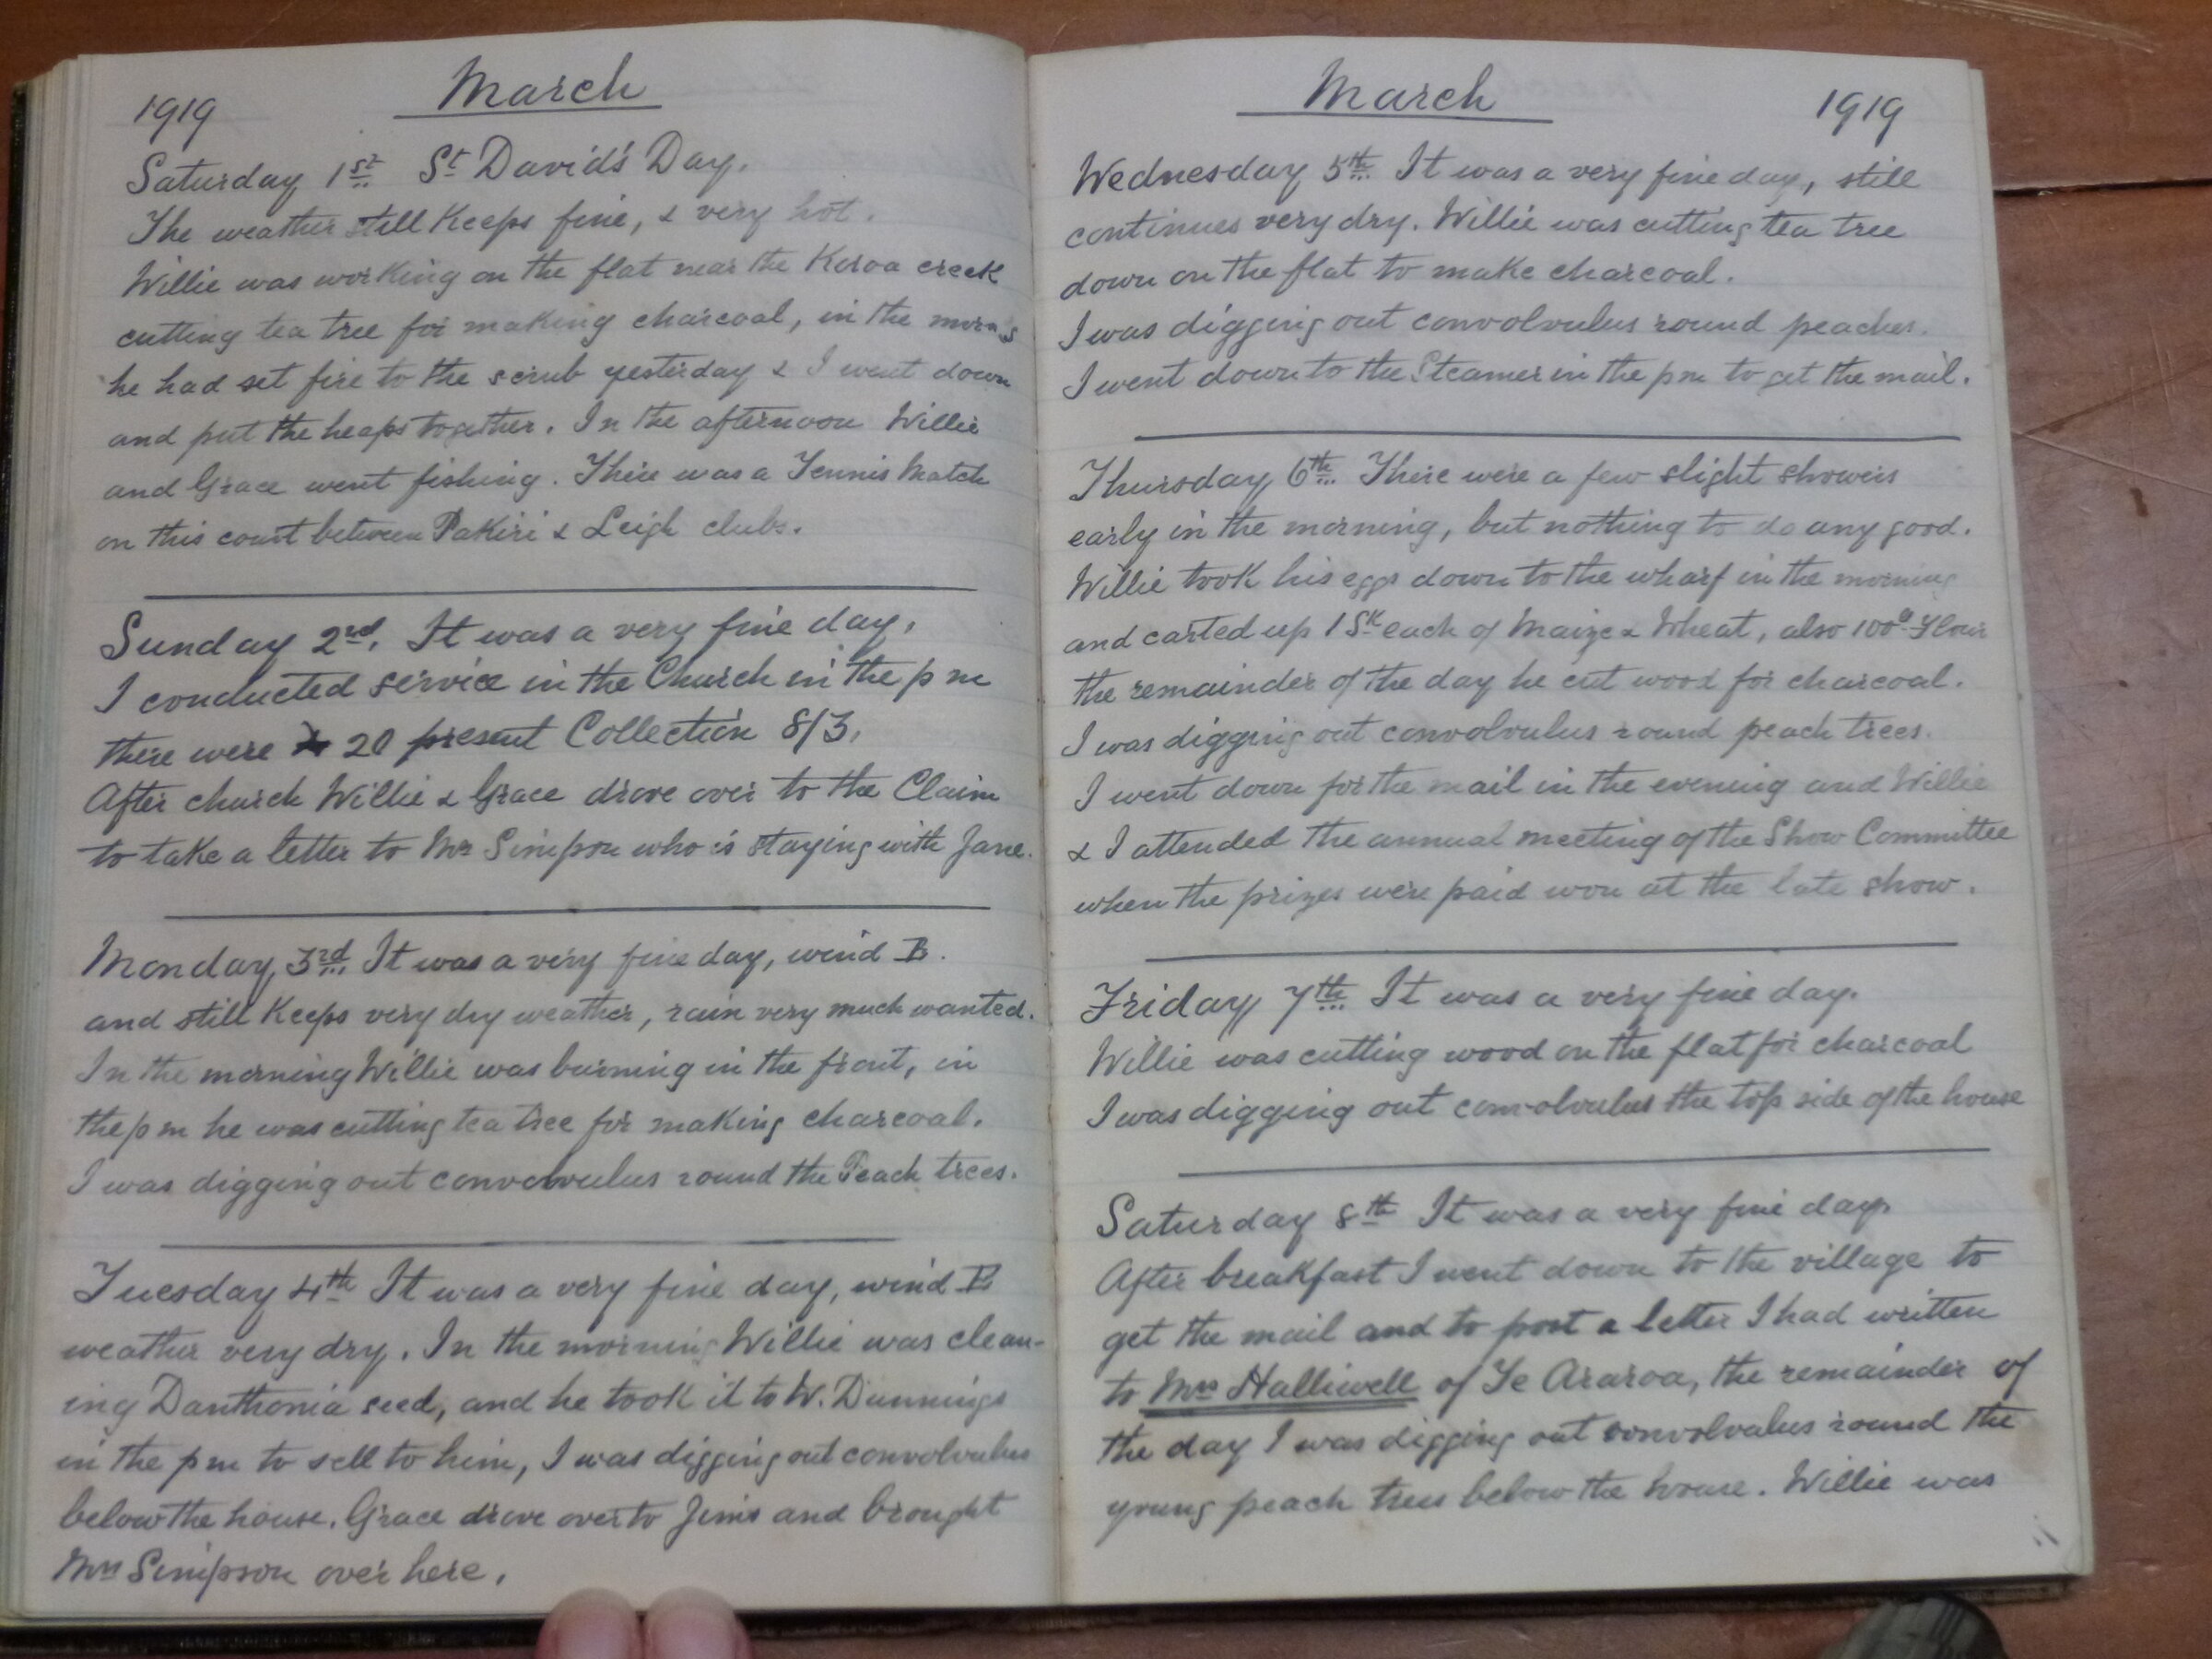 1919 March
Saturday 1st St David's Day.
The weather still Keeps fine, & very hot.
Willie was working on the flat near the Koroa creek
cutting tea tree for making charcoal, in the morng
he had set fire to the scrub yesterday & I went down
and put the heaps together. In the afternoon Willie
and Grace went fishing. There was a Tennis Match
on this court between Pakiri & Leigh clubs.
Sunday 2nd. It was a very fine day.
I conducted service in the Church in the pm
there were 20 present Collection 8/3.
After church Willie & Grace drove over to the Claim
to take a letter to Mrs Simpson who is staying with Jane.
Monday, 3rd It was a very fine day, wind E.
and still Keeps very dry weather, rain very much wanted.
In the morning Willie was burning in the front, in
the pm he was cutting tea tree for making charcoal.
I was digging out convolvulus round the Peach trees.
Tuesday 4th It was a very fine day, wind E
weather very dry. In the morning Willie was clean-
ing Danthonia seed, and he took it to W. Dunnings
in the pm to sell to him, I was digging out convolvulus
below the house. Grace drove over to Jims and brought
Mrs Simpson over here.
March 1919
Wednesday 5th It was a very fine day, still
continues very dry. Willie was cutting tea tree
down on the flat to make charcoal.
I was digging out convolvulus round peaches.
I went down to the Steamer in the pm to get the mail.
Thursday 6th There were a few slight showers
early in the morning, but nothing to do any good.
Willie took his eggs down to the wharf in the morning
and carted up 1 Sk each of Maize & Wheat, also 100 Flour
the remainder of the day he cut wood for charcoal.
I was digging out convolvulus round peach trees.
I went down for the mail in the evening and Willie
& I attended the annual meeting of the Show Committee
when the prizes were paid won at the late show.
Friday 7th It was a very fine day.
Willie was cutting wood on the flat for charcoal
I was digging out convolvulus the top side of the house
Saturday 8th It was a very fine day.
After breakfast I went down to the village to
get the mail and to post a letter I had written
to Mrs Halliwell of Te Araroa, the remainder of
the day I was digging out convolvulus round the
young peach trees below the house. Willie was